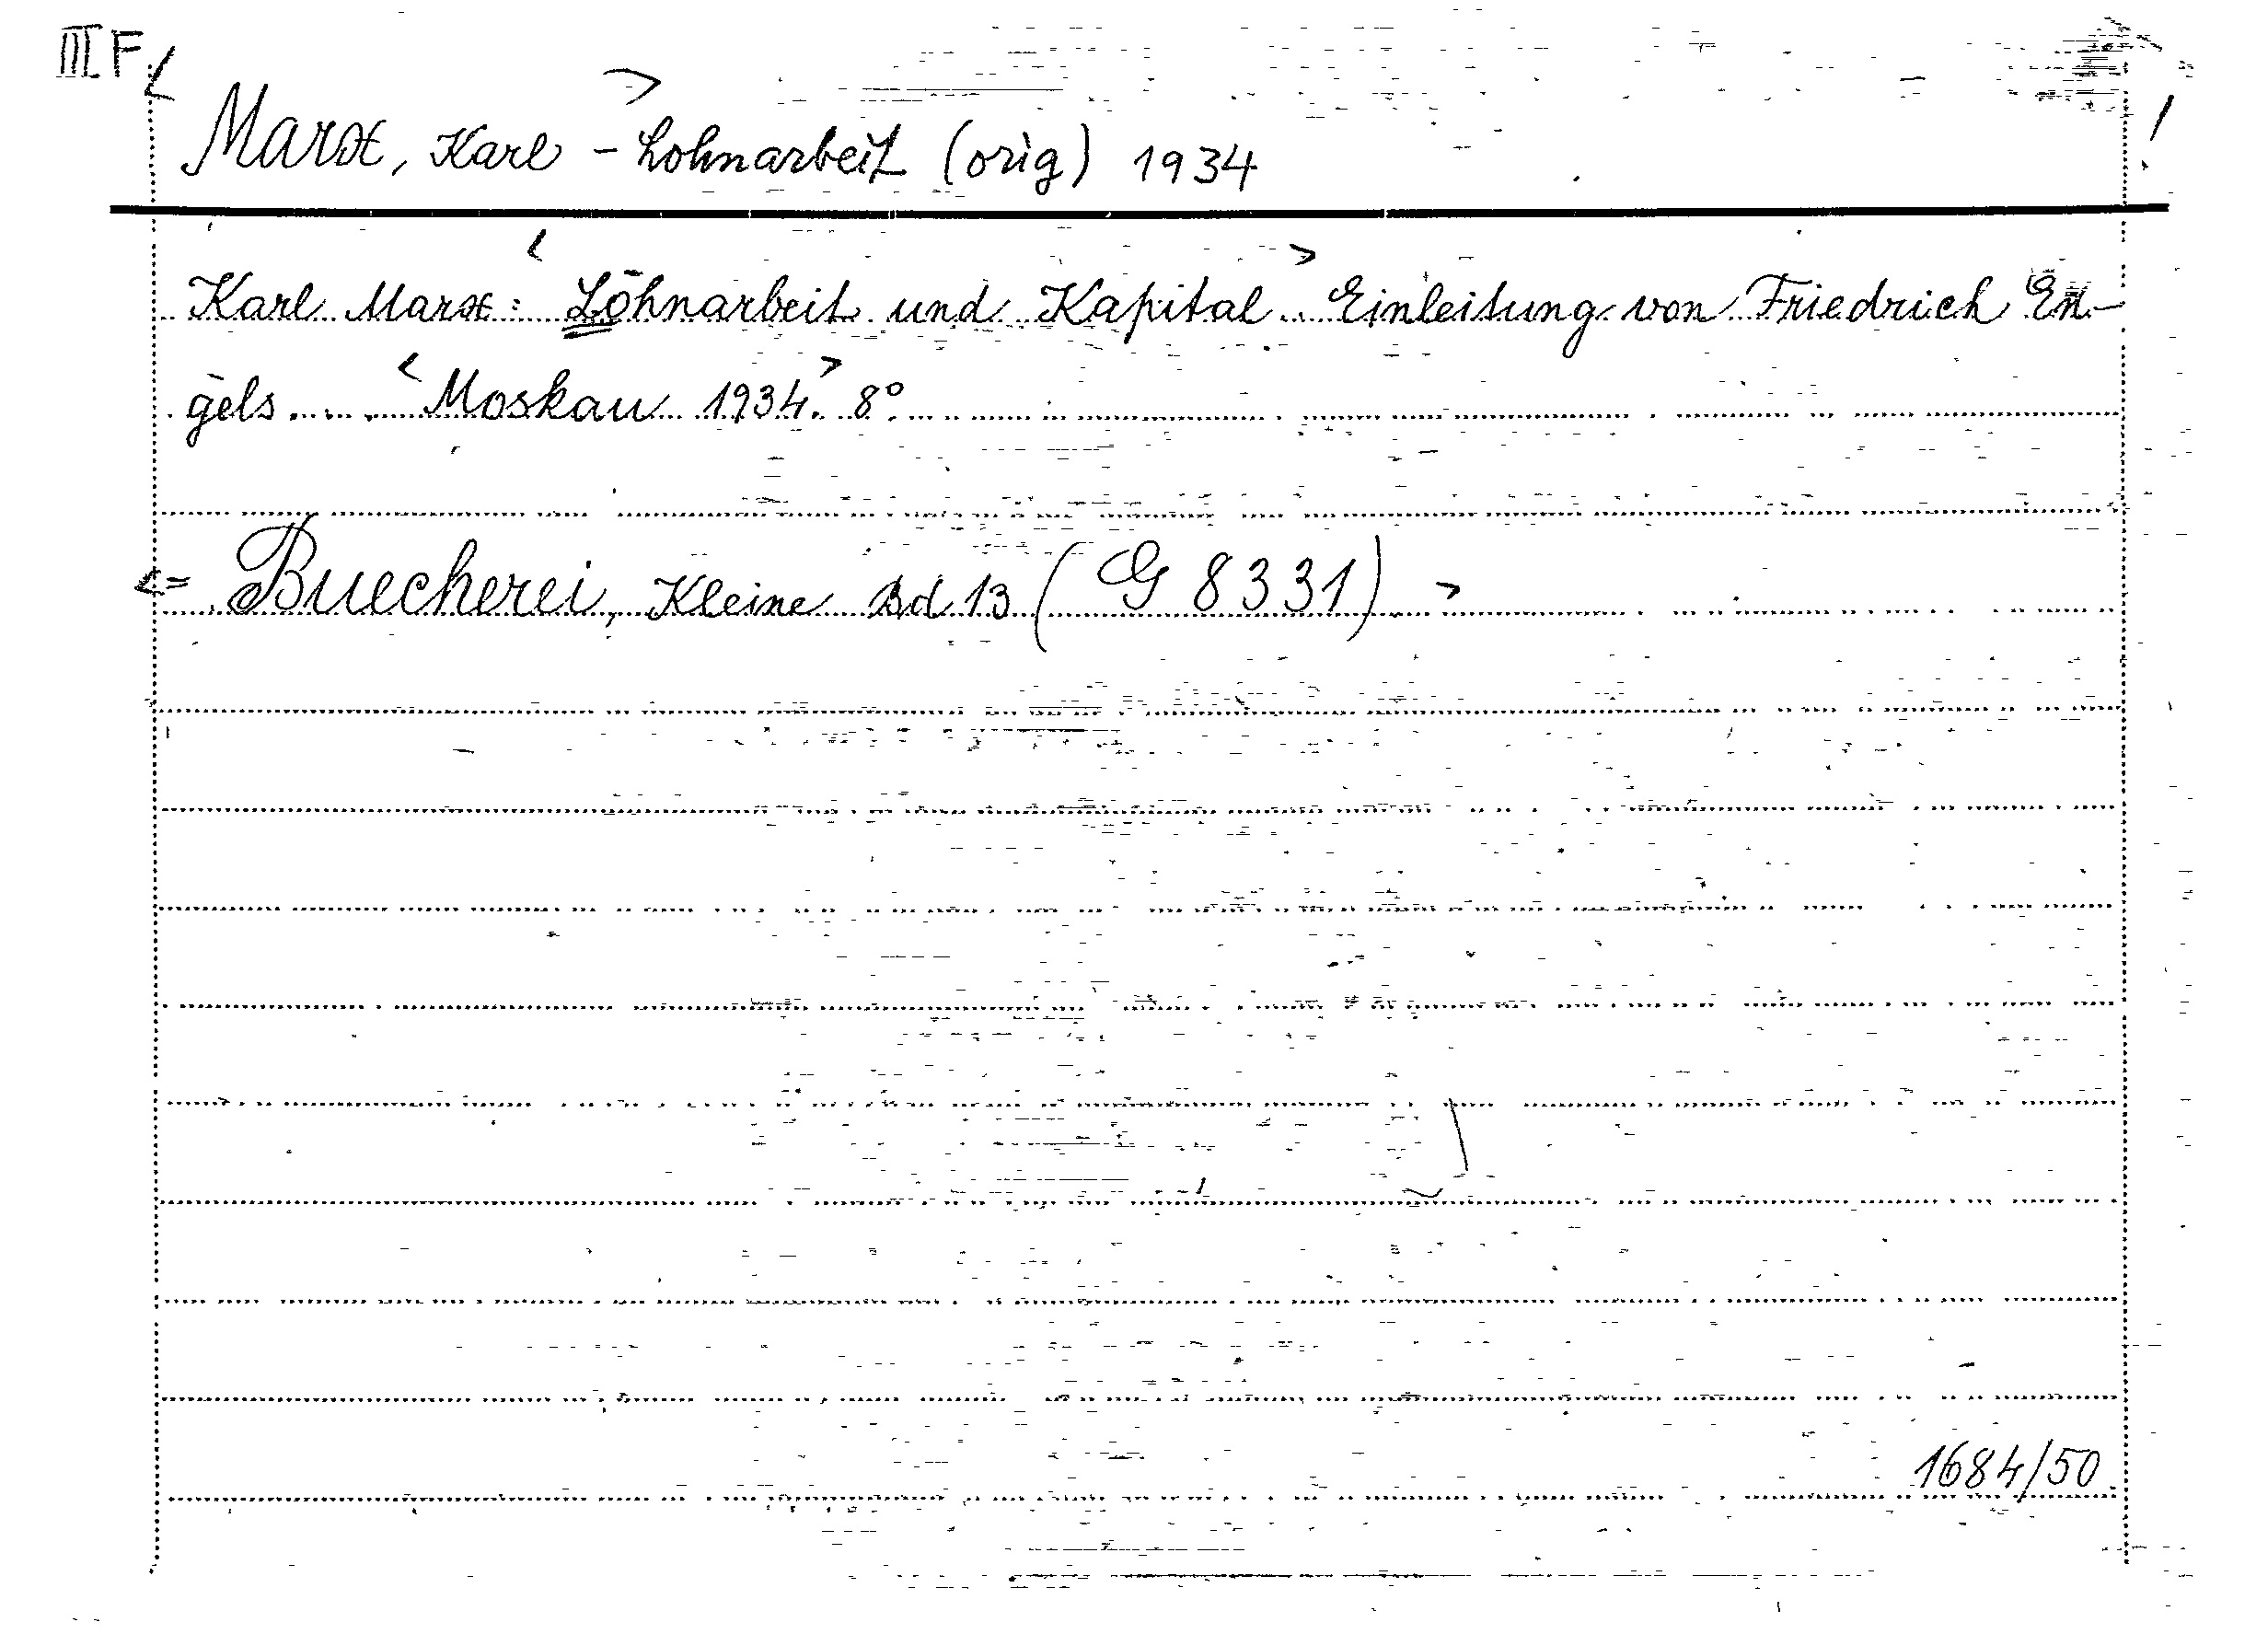 III F
< Marx, Karl > - Lohnarbeit (orig) 1934
Karl Marx: < Lohnarbeit und Kapital. > Einleitung von Friedrich En-
gels. ... < Moskau 1934. > 8°.
<= Buecherei, Kleine Bd 13 (G 8331) >
1684/50